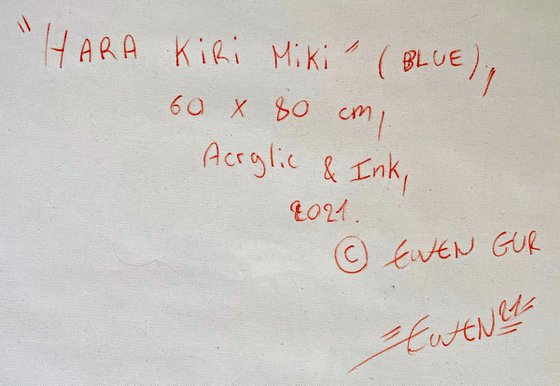 "HARA KiRi MiKi" (BLUE),
60 x 80 cm,
Acrylic & Ink,
2021.
© EWEN GUR
EWEN 21